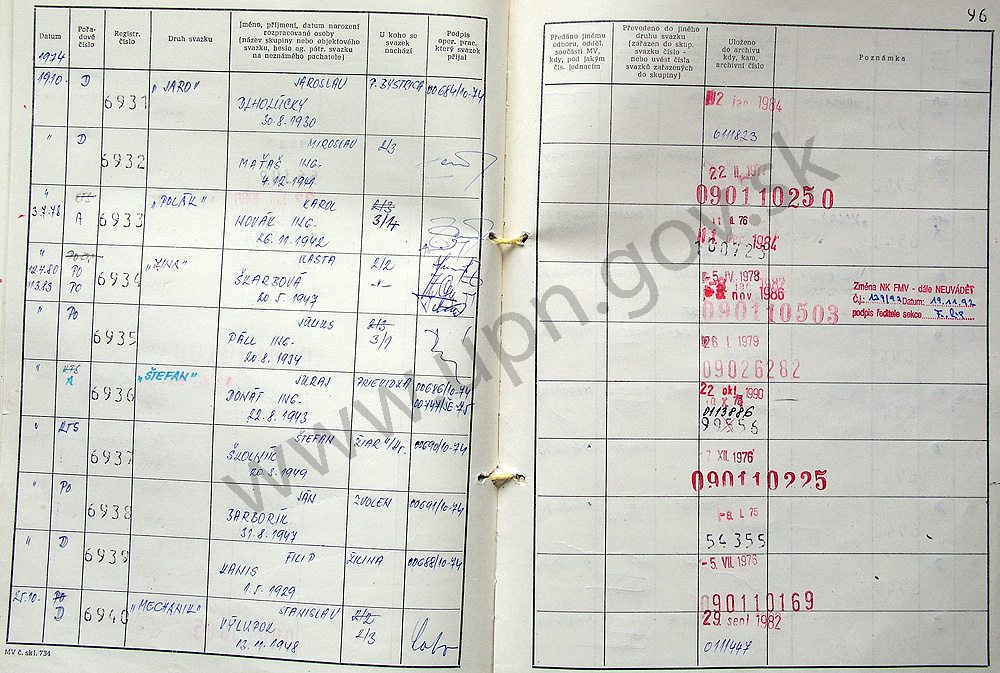 96
Datum
Pořa-
dové
číslo
Registr.
číslo
Druh svazku
Jméno, příjmení, datum narození
rozpracované osoby
(název skupiny nebo objektového
svazku, heslo ag. pátr. svazku
na neznámého pachatele)
U koho se
svazek
nachází
Podpis
oper. prac.
který svazek
přijal
Předáno jinému
odboru, odděl.
součásti MV,
kdy, pod jakým
čís. jednacím
Převedeno do jiného
druhu svazku
(zařazen do skup.
svazku číslo -
nebo uvést čísla
svazků zařazených
do skupiny)
Uloženo
do archivu
kdy, kam,
archivní číslo
Poznámka
1974
19.10. D 6931 "JARO" JAROSLAV P. BYSTRICA 00684/10-74
DLHOLÚCKY
30.8.1930
2 jan 1984
011823
" D 6932 MIROSLAV 2/3
MAŤAŠ ING.
4.12.1941
22 II.
090110250
" KTS 6933 "POLÁK" KAROL 2/3
3.7.78 A NOVÁK ING. 3/1
26.11.1942
11 II 76
1984
" 6934 "ZINA" VLASTA 2/2
12.4.80 PO ŠKARBOVÁ -"-
11.3.83 PO 20.5.1947
-5. IV. 1978
1982
nov 1986
090110503
Změna NK FMV - dále NEUVÁDĚT
Č.j.: 129/92 Datum: 19.11.92
podpis ředitele sekce
" PO 6935 JÚLIUS 2/3
PÁLL ING. 3/1
20.8.1934
26. I. 1979
09026282
" KTS 6936 "ŠTEFAN" JURAJ PRIEVIDZA 00686/10-74
A DONÁT ING.
22.8.1943
22 okt. 1990
0113886
99856
" KTS 6937 ŠTEFAN ŽIAR n/Hr. 00690/10-74
ŠKOLNÍK
20.3.1949
7 XII. 1976
090110225
" PO 6938 JÁN ZVOLEN 00691/10-74
BARBORÍK
31.8.1947
-8. I. 75
54355
" D 6939 FILIP ŽILINA 00688/10-74
KANIS
1.5.1929
-5. VII. 1976
090110169
25.10. PO 6940 "MECHANIK" STANISLAV 2/2
D VÝLUPOK 2/3
13.11.1948
29. sept 1982
011/447
MV č. skl. 734
www.upn.gov.sk